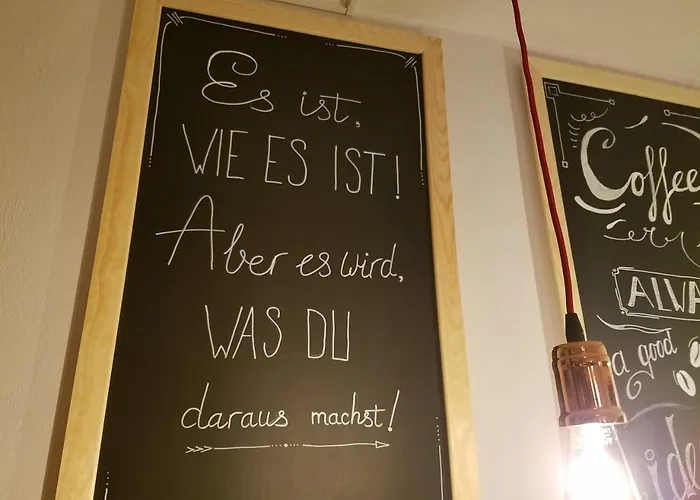 Es ist,
WIE ES IST!
Aber es wird,
WAS DU
daraus machst!
Coffee
a good